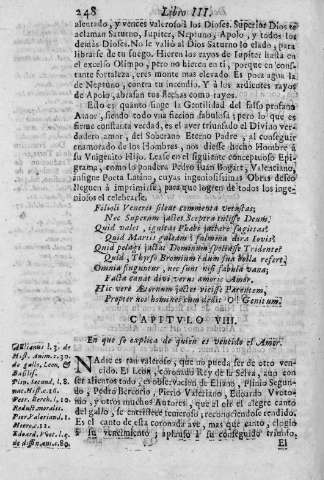 248 Libro III.
alentado, y vences valeroso à los Dioses. Superior Dios te
aclaman Saturno, Iupiter, Neptuno, Apolo, y todos los
demàs Dioses. No le valiò al Dios Saturno lo elado, para
librarse de tu fuego. Hieren los rayos de Iupiter hasta en
el excelso Olimpo, pero no hieren en ti, porque en cons-
tante fortaleza, eres monte mas elevado. Es poca agua la
de Neptuno, contra tu incendio. Y à los ardientes rayos
de Apolo, abrasan tus flechas como rayos.
Ello es quanto finge la Gentilidad del falso profano
Amor, siendo todo vna ficcion fabulosa; pero lo que es
firme constante verdad, es el aver triunfado el Divino ver-
dadero amor, del Soberano Eterno Padre, y al conseguir
enamorado de los Hombres, nos diesse hecho Hombre à
su Vnigenito Hijo. Lease en el siguiente conceptuoso Epi-
grama, como lo pondera Pedro Iuan Bogart, Valenciano,
insigne Poeta Latino, cuyas ingeniosissimas Obras deseo
lleguen à imprimirse, para que logren de todos los inge-
niosos el celebrarse.
Filioli Veneris sileat commenta vetustas;
Nec Superum jactet Sceptra tulisse Deum.
Quid valet, ignitas Phœbi jactare sagittas?
Quid Martis galeam? fulmina dira Iovis?
Quid pelagi jactat Dominum pressisse Tridentes?
Quid, Thyrso Bromium? dum sua bella refert;
Omnia fuguntur, nec sunt nisi fabula vana;
Facta canat divi verus amoris Amor.
Hic vere Æternum jactet vicisse Parentem,
Propter nos homines cum dedit O! Genitum.
CAPITVLO VIII.
En que se explica de quien es vencido el Amor.
NAdie es tan valeroso, que no pueda ser de otro ven-
cido. El Leon, coronado Rey de la Selva, aun con
ser alientos todo, es observacion de Eliano, Plinio Segun-
do, Pedro Bercorio, Pierio Valeriano, Eduardo Vvoto-
nio, y otros muchos Autores, que al oir el alegre canto
del gallo, se entristece temeroso, reconociendose rendido.
Es el canto de esta coronada ave, mas que canto, elogio
à su vencimiento; aplauso à su conseguido triunfo.
El
Ælianus l. 3. de
Hist. Anim. c. 30.
de gallo, Leon, &
Basilisc.
Plin. Secund. l. 8.
nat. Hist. c. 16.
Petr. Berch. l. 10.
Reduct. morales.
Pier. Valerian. l. 1.
Hiero. c. 12.
Eduard. Vvot. l. 5.
de diffin. ani. c. 80.